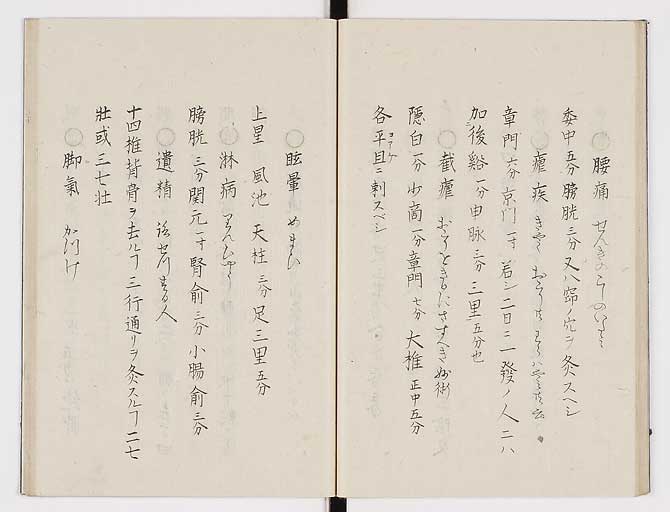 ○腰痛 せんきのこしのいたミ
委中五分膀胱三分又ハ帶ノ穴ヲ灸スヘシ
○瘧疾 ぎやく おこり
章門六分京門一寸 若シ二日ニ一發ノ人ニハ
加後谿一分申脉三分三里五分也
○截瘧 おこりをきるにさすへき妙術
隠白一分少商一分章門七分大椎正中五分
各平旦ニ刺スベシ
○眩暈 めまひ
上星 風池 天柱三分足三里五分
○淋病 りんびやう
膀胱三分関元一寸腎俞三分小腸俞三分
○遺精
十四推背骨ヲ去ルヿ三行通リヲ灸スルヿ二七
壯或三七壮
○脚氣 かつけ